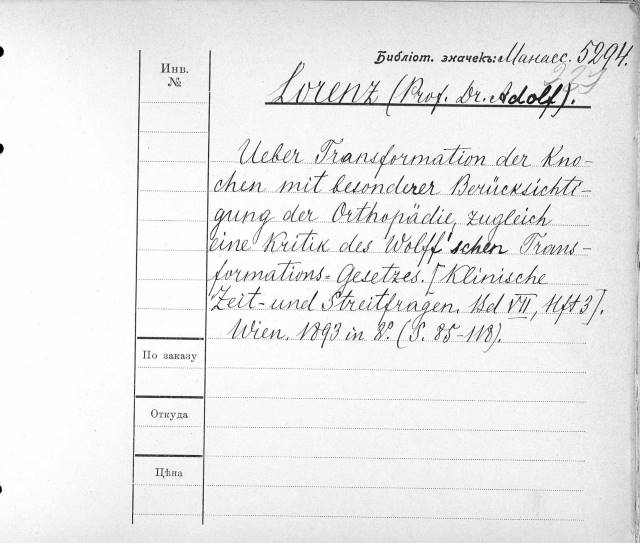 Библіот. значекъ: Манасс. 5294.
Инв.
№
Lorenz (Prof. Dr. Adolf).
Ueber Transformation der Kno-
chen mit besonderer Berücksichti-
gung der Orthopädie, zugleich
eine Kritik des Wolff'schen Trans-
formations-Gesetzes. [Klinische
Zeit- und Streitfragen. Bd VII, Hft 3].
Wien. 1893 in 8º. (S. 85-118).
По заказу
Откуда
Цѣна